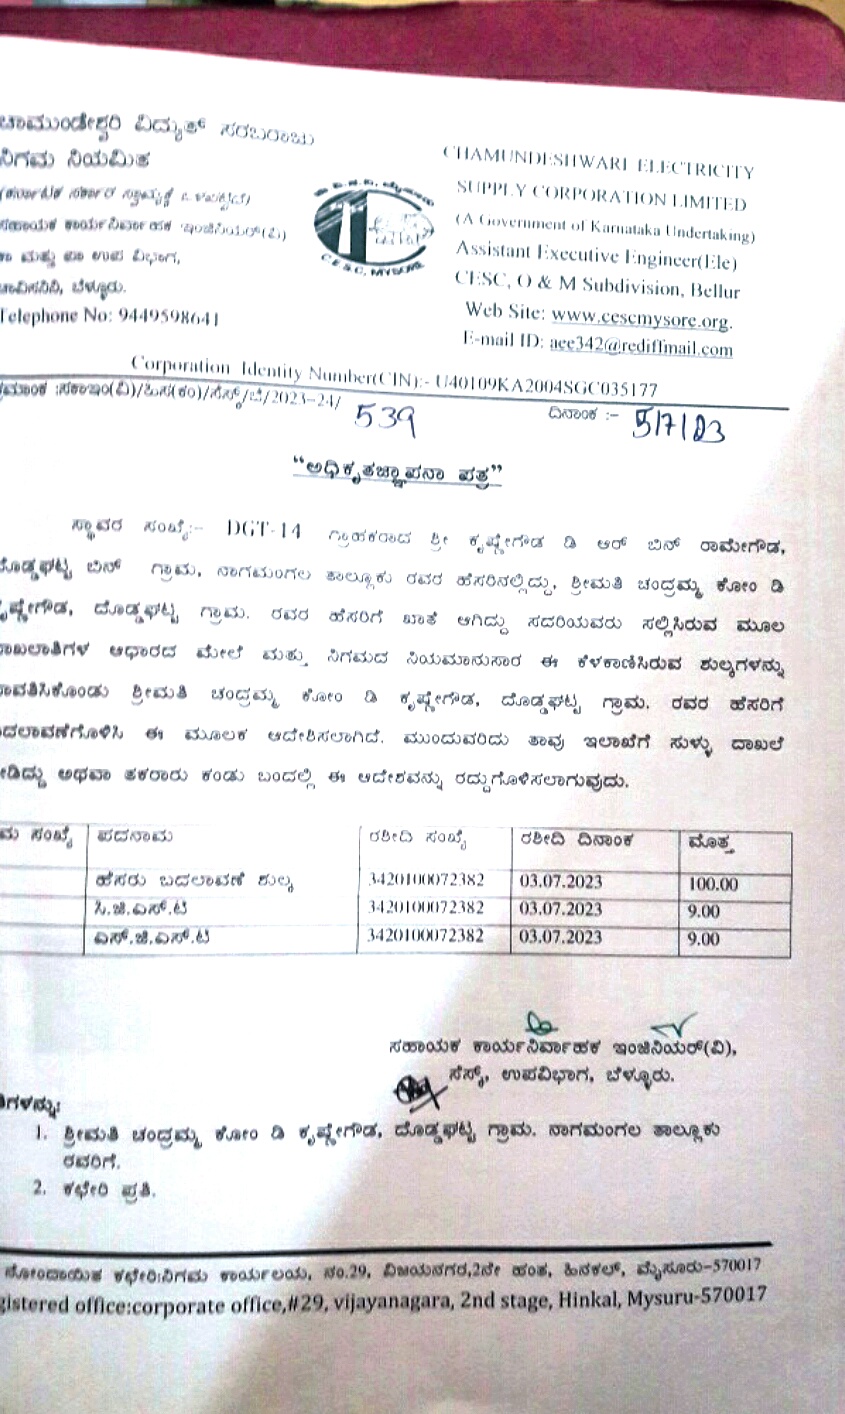 ಚಾಮುಂಡೇಶ್ವರಿ ವಿದ್ಯುತ್ ಸರಬರಾಜು
ನಿಗಮ ನಿಯಮಿತ
(ಕರ್ನಾಟಕ ಸರ್ಕಾರ ಸ್ವಾಮ್ಯಕ್ಕೆ ಒಳಪಟ್ಟಿದೆ)
ಸಹಾಯಕ ಕಾರ್ಯನಿರ್ವಾಹಕ ಇಂಜಿನಿಯರ್(ವಿ)
ಕಾ ಮತ್ತು ಪಾ ಉಪ ವಿಭಾಗ,
ಚಾವಿಸನಿನಿ, ಬೆಳ್ಳೂರು.
Telephone No: 9449598641
CESC, MYSORE
CHAMUNDESHWARI ELECTRICITY
SUPPLY CORPORATION LIMITED
(A Government of Karnataka Undertaking)
Assistant Executive Engineer(Ele)
CESC, O & M Subdivision, Bellur
Web Site: www.cescmysore.org.
E-mail ID: aee342@rediffmail.com
Corporation Identity Number(CIN):- U40109KA2004SGC035177
:ಸಕಾಇಂ(ವಿ)/ಹಿಸ(ಕಂ)/ಸೆಸ್ಕ್/ಬೆ/2023-24/ 539 ದಿನಾಂಕ :- 5/7/23
“ಅಧಿಕೃತಜ್ಞಾಪನಾ ಪತ್ರ”
ಸ್ಥಾವರ ಸಂಖ್ಯೆ:- DGT-14 ಗ್ರಾಹಕರಾದ ಶ್ರೀ ಕೃಷ್ಣೇಗೌಡ ಡಿ ಆರ್ ಬಿನ್ ರಾಮೇಗೌಡ,
ದೊಡ್ಡಘಟ್ಟ ಬಿನ್ ಗ್ರಾಮ, ನಾಗಮಂಗಲ ತಾಲ್ಲೂಕು ರವರ ಹೆಸರಿನಲ್ಲಿದ್ದು, ಶ್ರೀಮತಿ ಚಂದ್ರಮ್ಮ ಕೋಂ ಡಿ
ಕೃಷ್ಣೇಗೌಡ, ದೊಡ್ಡಘಟ್ಟ ಗ್ರಾಮ. ರವರ ಹೆಸರಿಗೆ ಖಾತೆ ಆಗಿದ್ದು ಸದರಿಯವರು ಸಲ್ಲಿಸಿರುವ ಮೂಲ
ದಾಖಲಾತಿಗಳ ಆಧಾರದ ಮೇಲೆ ಮತ್ತು ನಿಗಮದ ನಿಯಮಾನುಸಾರ ಈ ಕೆಳಕಾಣಿಸಿರುವ ಶುಲ್ಕಗಳನ್ನು
ಪಾವತಿಸಿಕೊಂಡು ಶ್ರೀಮತಿ ಚಂದ್ರಮ್ಮ ಕೋಂ ಡಿ ಕೃಷ್ಣೇಗೌಡ, ದೊಡ್ಡಘಟ್ಟ ಗ್ರಾಮ. ರವರ ಹೆಸರಿಗೆ
ಬದಲಾವಣೆಗೊಳಿಸಿ ಈ ಮೂಲಕ ಆದೇಶಿಸಲಾಗಿದೆ. ಮುಂದುವರಿದು ತಾವು ಇಲಾಖೆಗೆ ಸುಳ್ಳು ದಾಖಲೆ
ನೀಡಿದ್ದು ಅಥವಾ ತಕರಾರು ಕಂಡು ಬಂದಲ್ಲಿ ಈ ಆದೇಶವನ್ನು ರದ್ದುಗೊಳಿಸಲಾಗುವುದು.
ಸಂಖ್ಯೆ ಪದನಾಮ ರಶೀದಿ ಸಂಖ್ಯೆ ರಶೀದಿ ದಿನಾಂಕ ಮೊತ್ತ
ಹೆಸರು ಬದಲಾವಣೆ ಶುಲ್ಕ 3420100072382 03.07.2023 100.00
ಸಿ.ಜಿ.ಎಸ್.ಟಿ 3420100072382 03.07.2023 9.00
ಎಸ್.ಜಿ.ಎಸ್.ಟಿ 3420100072382 03.07.2023 9.00
ಸಹಾಯಕ ಕಾರ್ಯನಿರ್ವಾಹಕ ಇಂಜಿನಿಯರ್(ವಿ),
ಸೆಸ್ಕ್, ಉಪವಿಭಾಗ, ಬೆಳ್ಳೂರು.
1. ಶ್ರೀಮತಿ ಚಂದ್ರಮ್ಮ ಕೋಂ ಡಿ ಕೃಷ್ಣೇಗೌಡ, ದೊಡ್ಡಘಟ್ಟ ಗ್ರಾಮ. ನಾಗಮಂಗಲ ತಾಲ್ಲೂಕು
ರವರಿಗೆ.
2. ಕಛೇರಿ ಪ್ರತಿ.
ನೋಂದಾಯಿತ ಕಛೇರಿ:ನಿಗಮ ಕಾರ್ಯಲಯ, ನಂ.29, ವಿಜಯನಗರ,2ನೇ ಹಂತ, ಹಿನಕಲ್, ಮೈಸೂರು-570017
gistered office:corporate office,#29, vijayanagara, 2nd stage, Hinkal, Mysuru-570017